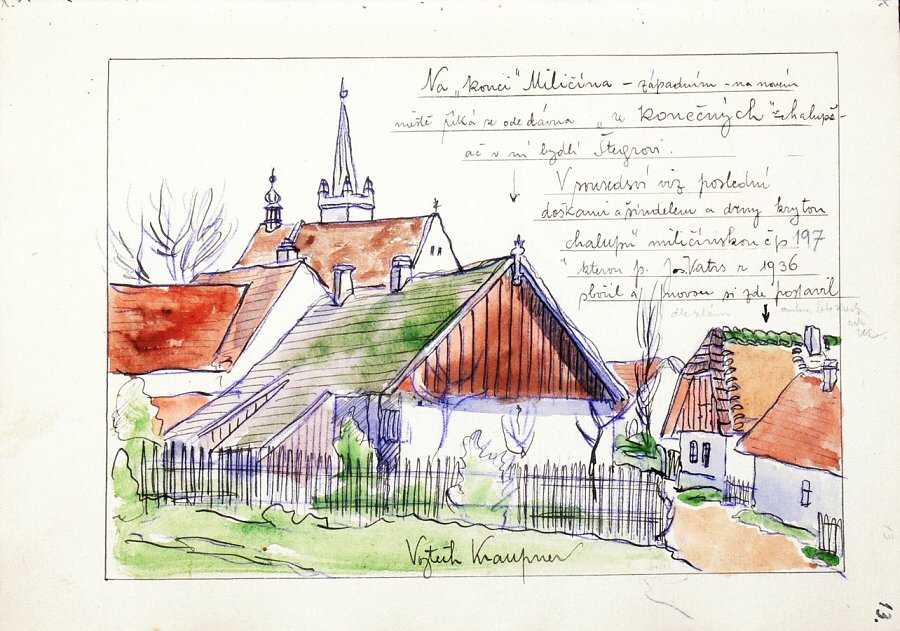 Na „konci“ Miličína – západním – na novém
městě říká se ode dávna „u konečných“ v chalupě –
ač v ní bydlí Štegrovi.
V sousedsví viz poslední
doškami a šindelem a drny krytou
chalupu miličínskou čp 197
kterou p. Jos. Vatrs r 1936
sbořil a novou si zde postavil
dle
Vojtěch Kraupner
13.